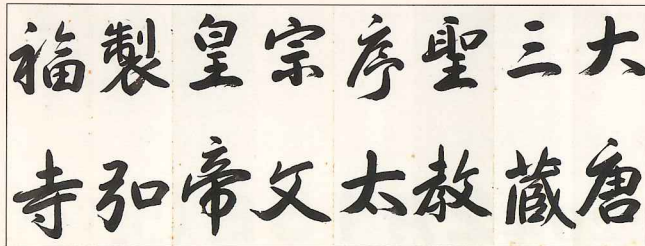 大唐
三蔵
聖教
序太
宗文
皇帝
製弘
福寺